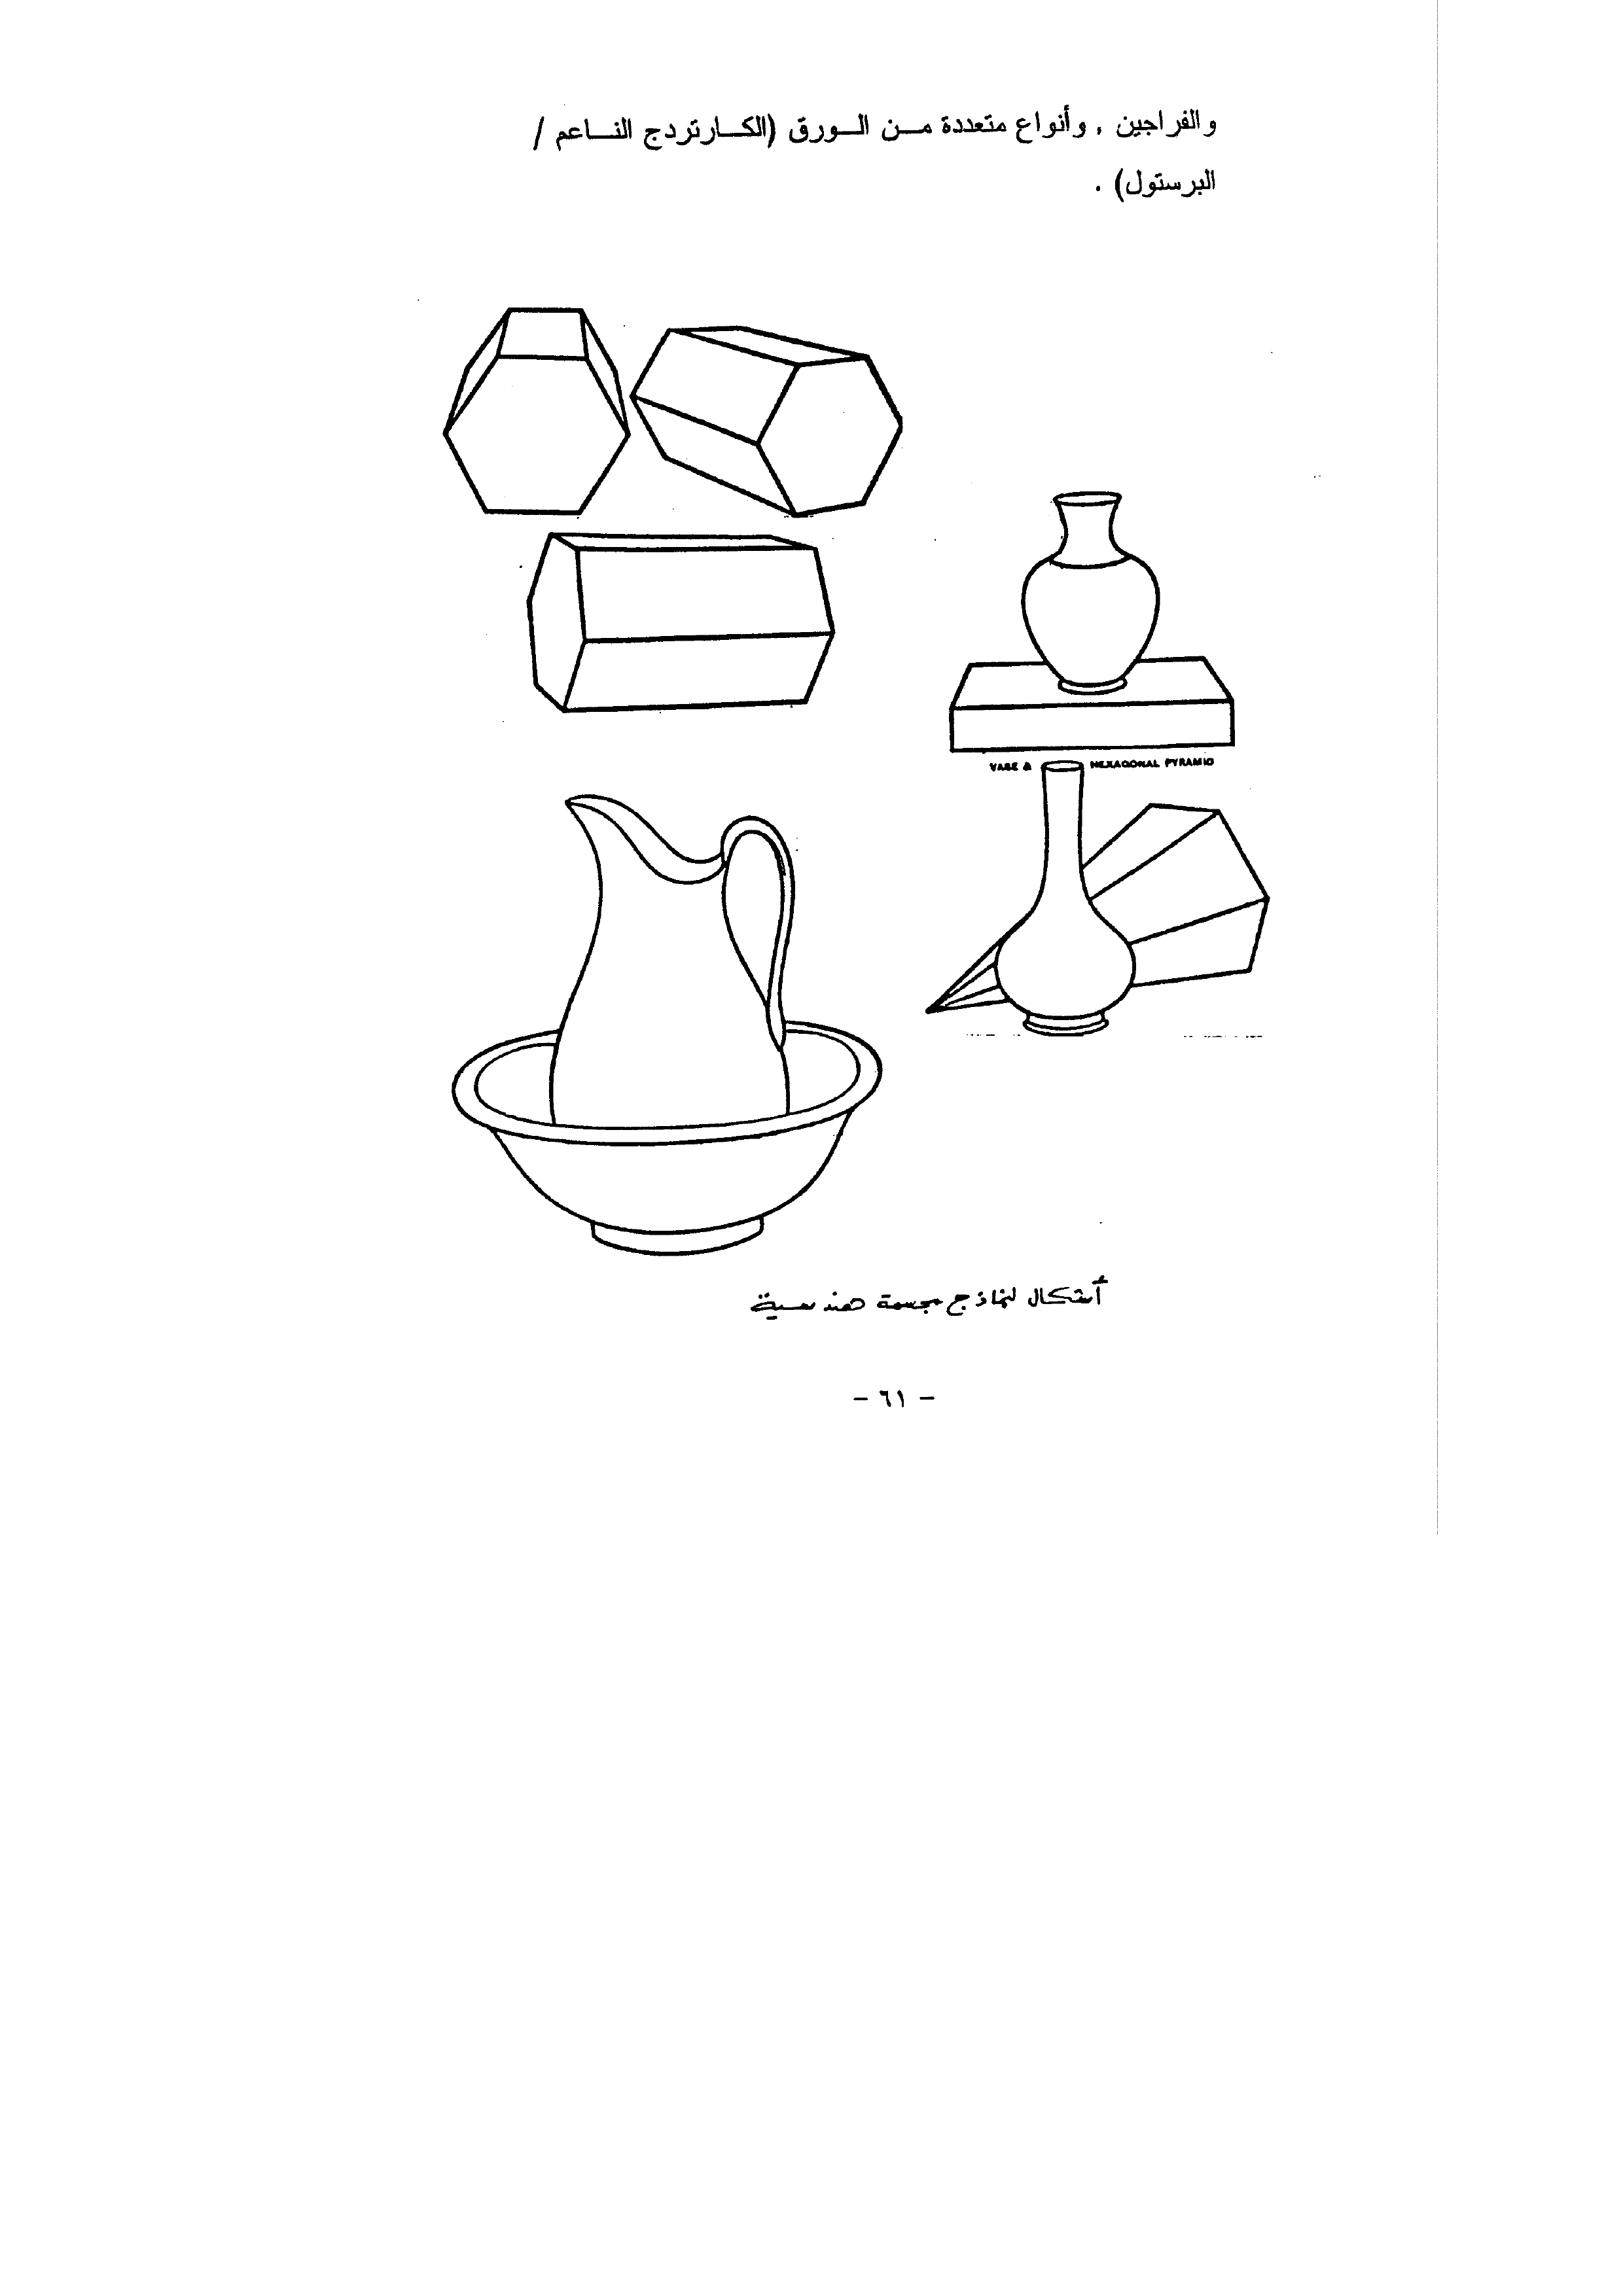 والفراجين , وأنواع متعددة مـن الـورق (الكـارتردج النـاعم /
البرستول) .
VASE & HEXAGONAL PYRAMID
أشكال لنماذج مجسمة هندسية
- ٦١ -